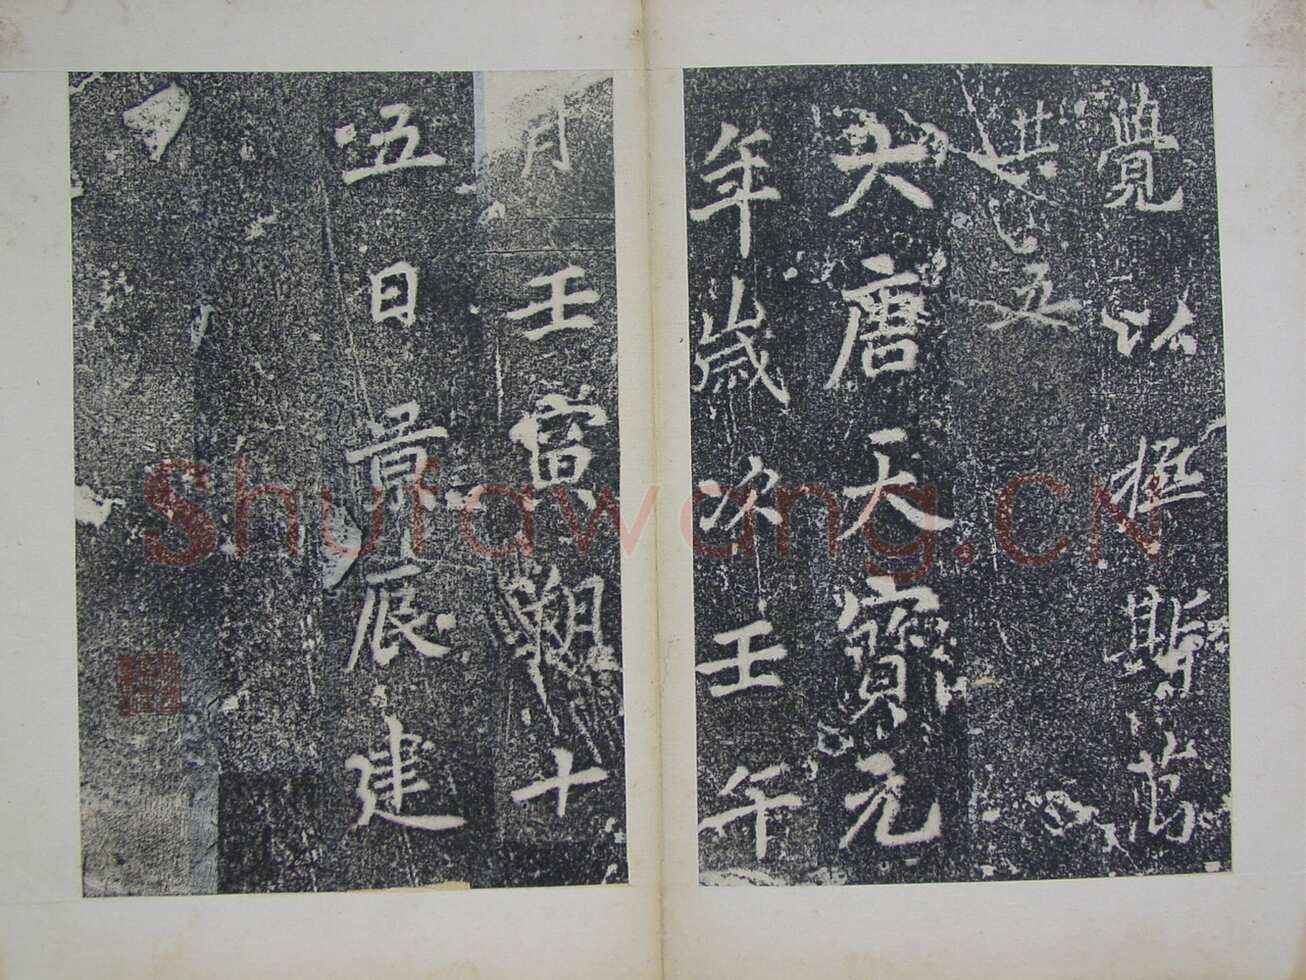 覺以極斯苦
共五
大唐天寶元
年歲次壬午
月壬寅朔十
五日景辰建
Shufawang.CN